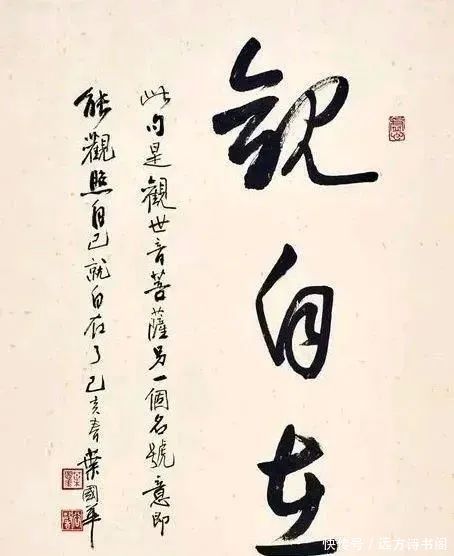 觀自在
此句是觀世音菩薩另一個名號意即
能觀照自己就自在了己亥春葉國平
快传号/远方诗书阁